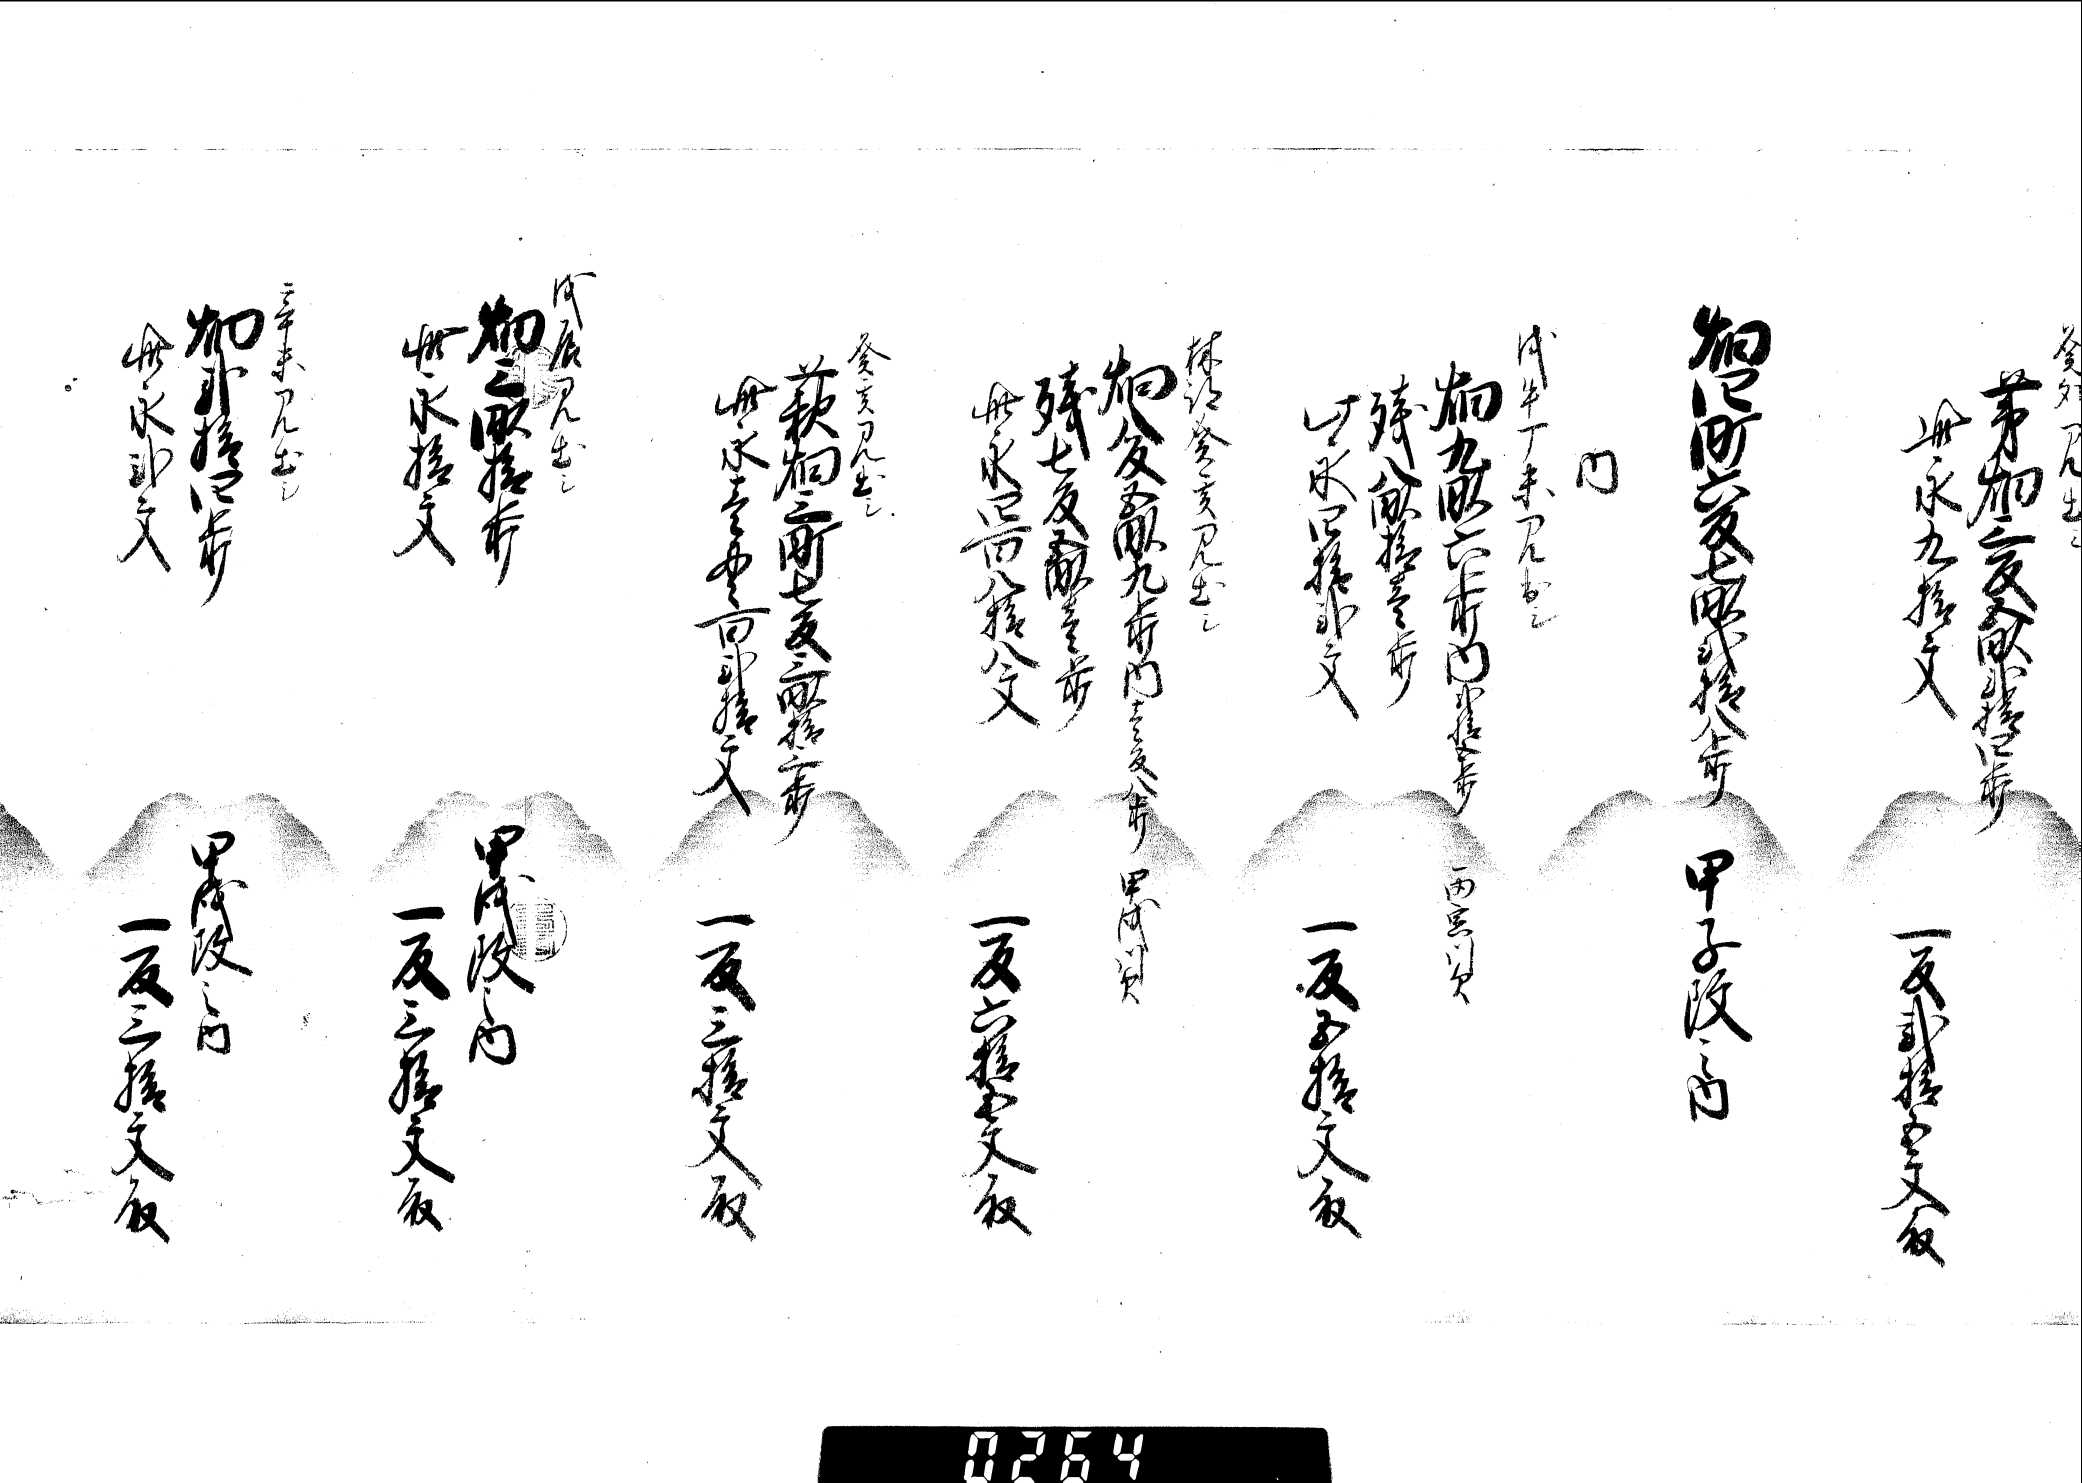 癸卯見出し
茅畑二反五畝弐拾四歩
此永九拾文
一反弐拾五文取
畑四町六反七畝弐拾八歩
甲子改之内
内
戊午丁未見出し
畑九畝六歩内弐拾五歩
残八畝拾壱歩
此永四拾弐文
一反五拾文取
林訳癸亥見出し
畑八反五畝九歩内壱反八歩
甲戌川欠
残七反五畝壱歩
此永四百八拾八文
一反六拾五文取
癸亥見出し
萩畑三町七反三畝拾二歩
此永壱貫百弐拾文
一反三拾文取
戊辰見出し
畑三畝拾歩
甲戌改之内
此永拾文
一反三拾文取
辛未見出し
畑弐拾四歩
甲戌改之内
此永弐文
一反三拾文取
0264